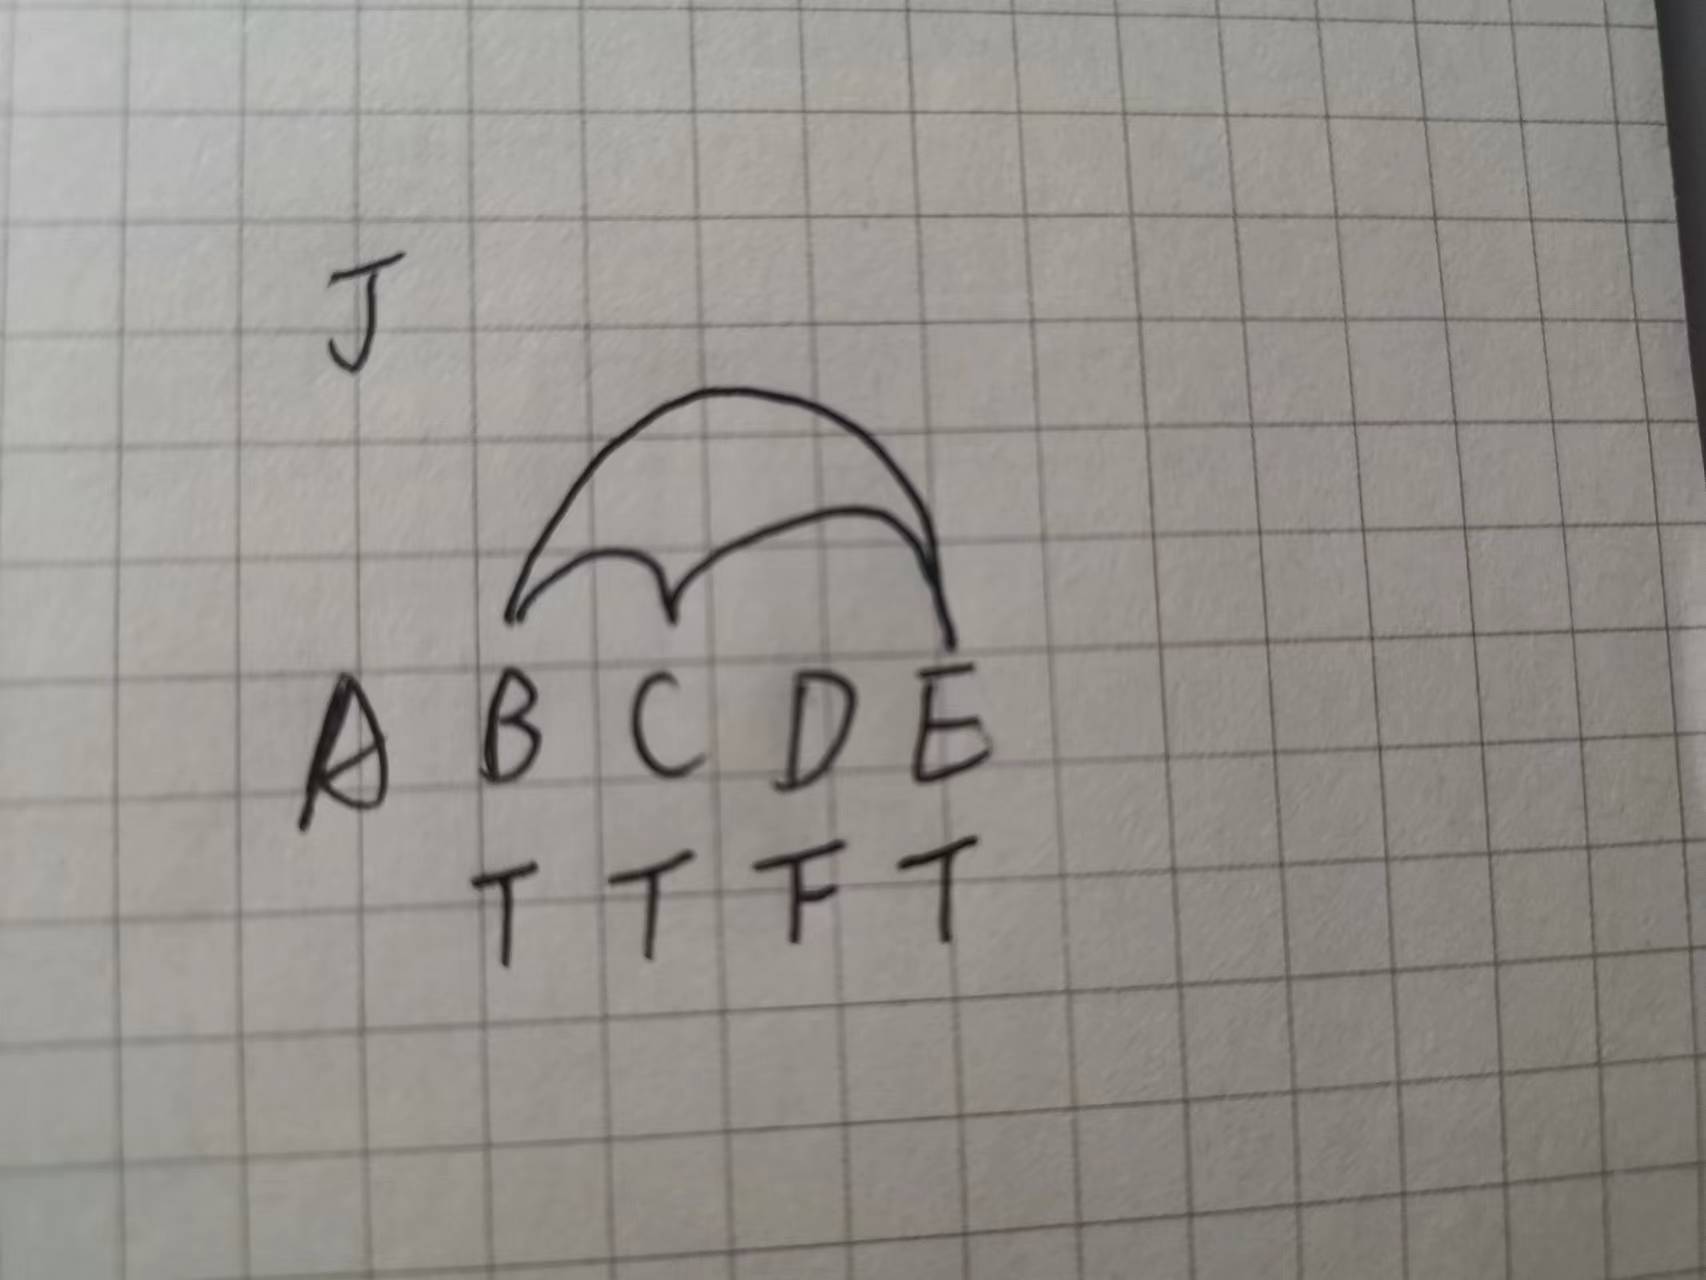 J
A B C D E
T T F T